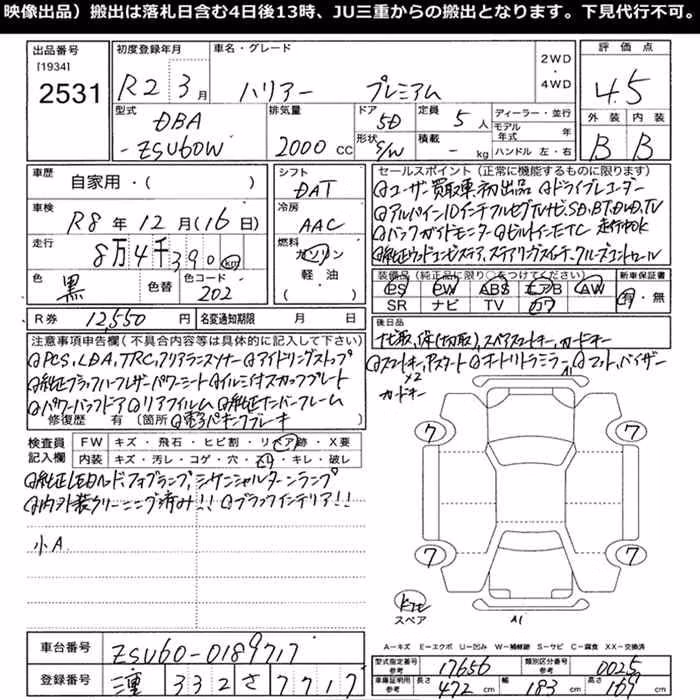 映像出品）搬出は落札日含む4日後13時、JU三重からの搬出となります。下見代行不可。
出品番号
[1934]
2531
初度登録年月
R2 3月
車名・グレード
ハリアー プレミアム
2WD
・
4WD
評価点
4.5
外装 内装
B B
型式
DBA
-ZSU60W
排気量
2000 CC
ドア
5D
形状
S/W
定員
5人
積載
- kg
ディーラー・並行
モデル年式 年
ハンドル 左・右
車歴
自家用・( )
車検
R8年12月(16日)
走行
8万4千390km
色
黒
色替
色コード
202
シフト
DAT
冷房
AAC
燃料
ガソリン
軽油
( )
R券 12,550円
名変通知期限 月 日
セールスポイント（正常に機能するものに限ります）
◎ユーザー買取車初出品 ◎ドライブレコーダー
◎アルパイン10インチフルセグTVナビ,SD,BT,DVD,TV
◎バックガイドモニター ◎ビルトインETC 走行中OK
◎純正ウッドコンビステア,ステアリングスイッチ,クルーズコントロール
装備品（純正品に限り○をつけてください）
PS PW ABS エアB AW
SR ナビ TV カワ
新車保証書
有・無
後日品
ナビ取,保(切取),スペアスマートキー,カードキー
注意事項申告欄（不具合内容等は具体的に記入して下さい）
◎PCS,LDA,TRC,クリアランスソナー ◎アイドリングストップ
◎純正ブラックハーフレザーパワーシート ◎イルミ付スカッフプレート
◎パワーバックドア ◎リアフィルム ◎純正ナンバーフレーム
修復歴 有 〔箇所 ◎電子パーキングブレーキ
◎スマートキー,Pスタート ◎オートリトラミラー ◎マット,バイザー
×2
カードキー
A1
検査員記入欄
FW キズ・飛石・ヒビ割・リペア跡・X要
内装 キズ・汚レ・コゲ・穴・スレ・キレ・破レ
◎純正LEDヘッド,フォグランプ,シーケンシャルターンランプ
◎内外装クリーニング済み!! ◎ブラックインテリア!!
小A
7 7
7 7
スペア
A1
A－キズ E－エクボ U－凹み W－補修跡 S－サビ C－腐食 XX－交換済
車台番号 ZSU60-0189717
登録番号 三重 332 さ 7717
型式指定番号 参考 17656
類別区分番号 参考 0025
車庫証明用 参考
長さ 472 cm 幅 183 cm 高さ 169 cm